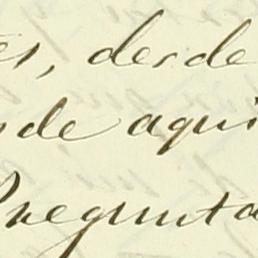 es, desde
de aqui
Pregunta